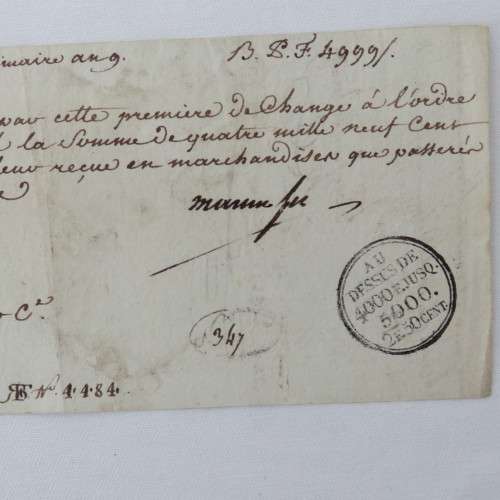 maire an 9. B. P. F. 4999/.
cette premiere de Change à l'ordre
la Somme de quatre mille neuf Cent
reçue en marchandises que passerés
& Cie
347
AU
DESSUS DE
4000 F. JUSQ.
5000.
2F. 50 CENT.
No. 4.4.84.